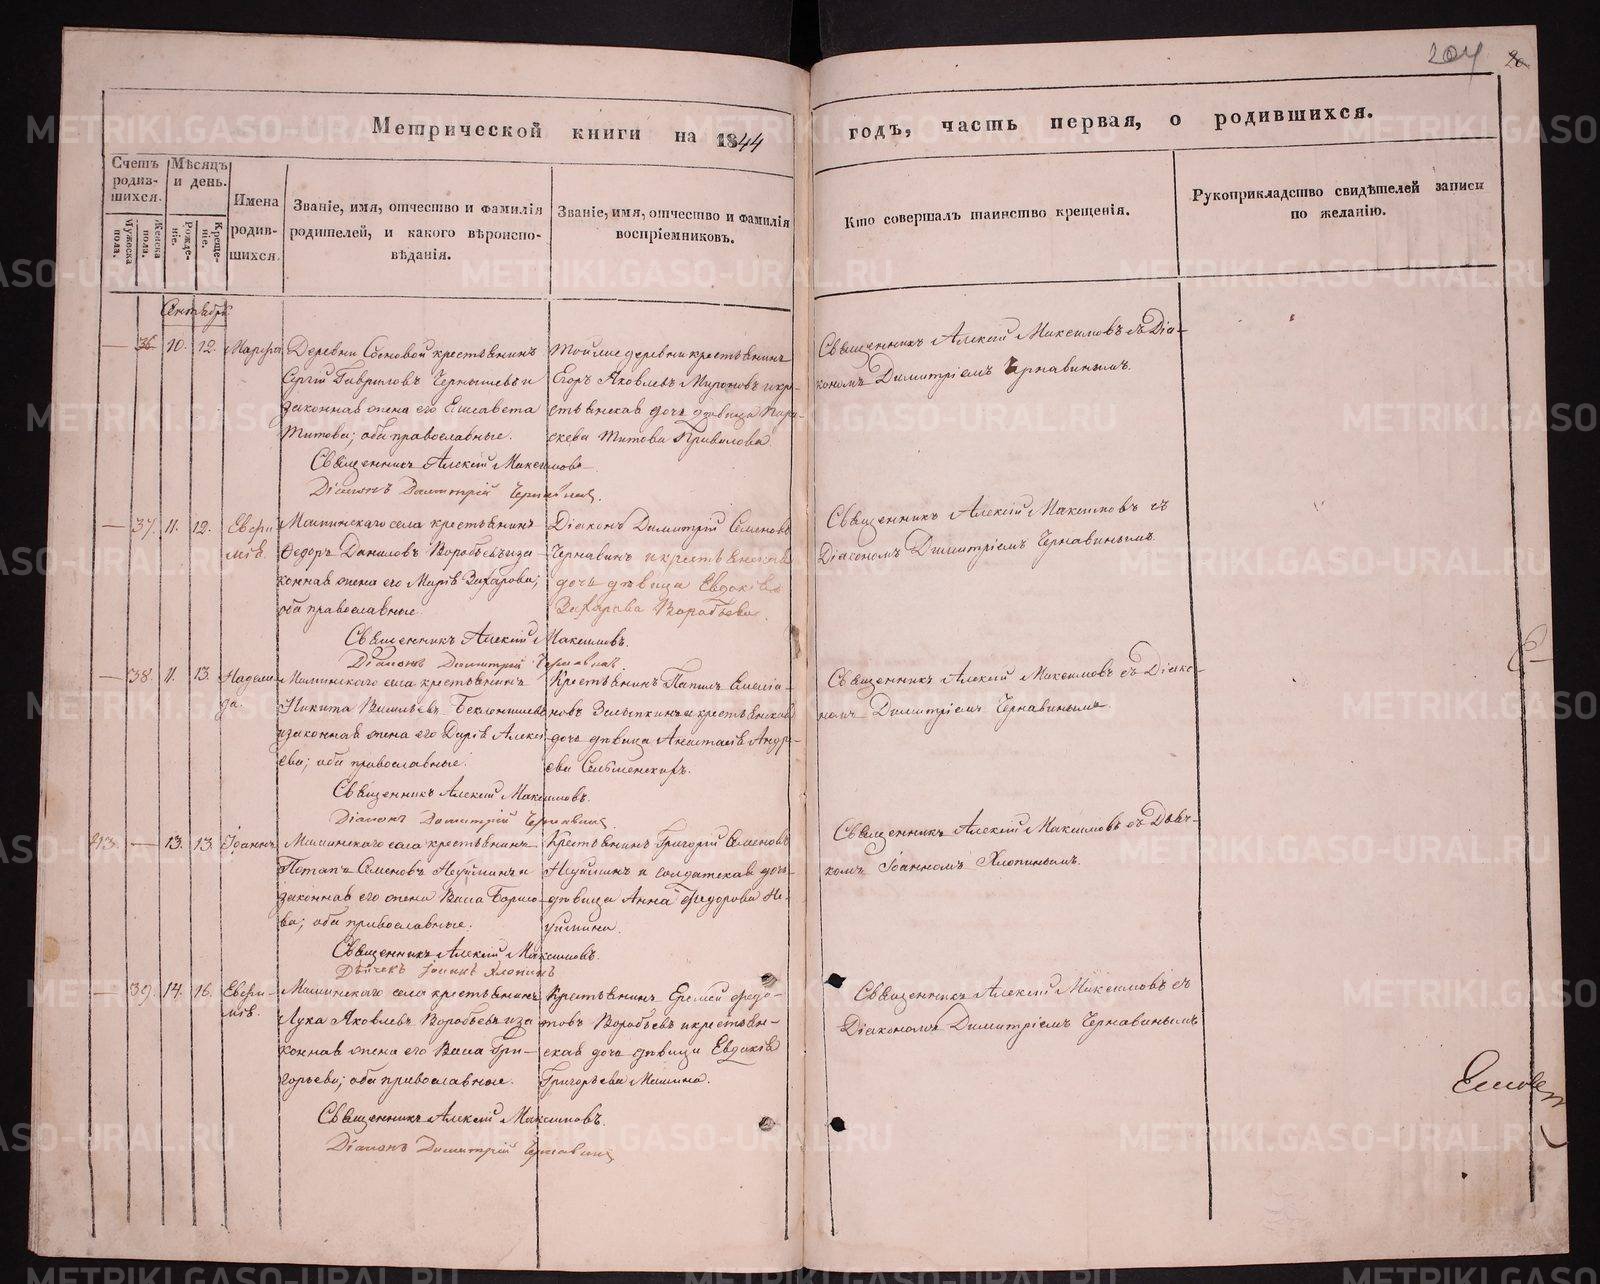 204
Метрической книги на 1844
годъ, часть первая, о родившихся.
Счетъ родив-шихся.
Мужеска пола.
Женска пола.
Мѣсяцъ и день.
Рожде-ніе.
Креще-ніе.
Имена родив-шихся.
Званіе, имя, отчество и фамилія
родителей, и какого вѣроиспо-
вѣданія.
Званіе, имя, отчество и фамилія
воспріемниковъ.
Кто совершалъ таинство крещенія.
Рукоприкладство свидѣтелей записи
по желанію.
Сентябрь
— 36. 10. 12. Марѳа
Деревни крестьянинъ
Сергій Гавриловъ Чернышевъ и
законная жена его Елисавета
Титова; оба православные.
Священникъ Алексій Максимовъ
Діаконъ Димитрій Чернавинъ.
Той же деревни крестьянинъ
Егоръ Яковлевъ Мироновъ и кре-
стьянская дочь дѣвица Пара-
скева Титова
Священникъ Алексій Максимовъ съ Діа-
кономъ Димитріемъ Чернавинымъ.
— 37. 11. 12. Евфи-
мія.
Маминскаго села крестьянинъ
Ѳедоръ Даниловъ Воробьевъ и за-
конная жена его Марія Захарова;
оба православные.
Священникъ Алексій Максимовъ.
Діаконъ Димитрій Чернавинъ.
Діаконъ Димитрій Семеновъ
Чернавинъ и крестьянская
дочь дѣвица Евдокія
Захарова Воробьева.
Священникъ Алексій Максимовъ съ
Діакономъ Димитріемъ Чернавинымъ.
— 38. 11. 13. Надеж-
да.
Маминскаго села крестьянинъ
Никита Васильевъ Беклемишевъ
и законная жена его Дарія Алексѣ-
ева; оба православные.
Священникъ Алексій Максимовъ.
Діаконъ Димитрій Чернавинъ.
Крестьянинъ
новъ и крестьянская
дочь дѣвица Анастасія Андре-
ева
Священникъ Алексій Максимовъ съ Діако-
номъ Димитріемъ Чернавинымъ.
43. — 13. 13. Іоаннъ.
Маминскаго села крестьянинъ
Потапъ Семеновъ Неуйминъ и
законная его жена Васса Борисо-
ва; оба православные.
Священникъ Алексій Максимовъ.
Дьячекъ Іоаннъ Хлопинъ
Крестьянинъ Григорій Семеновъ
Неуйминъ и солдатская дочь
дѣвица Анна Ѳедорова Не-
уймина.
Священникъ Алексій Максимовъ съ Дьяч-
комъ Іоанномъ Хлопинымъ.
— 39. 14. 16. Евфи-
мія.
Маминскаго села крестьянинъ
Лука Яковлевъ Воробьевъ и за-
конная жена его Васса Гри-
горьева; оба православные.
Священникъ Алексій Максимовъ.
Діаконъ Димитрій Чернавинъ
Крестьянинъ Еремей Ѳедо-
товъ Воробьевъ и крестьян-
ская дочь дѣвица Евдокія
Григорьева Мамина.
Священникъ Алексій Максимовъ съ
Діакономъ Димитріемъ Чернавинымъ
METRIKI.GASO-URAL.RU